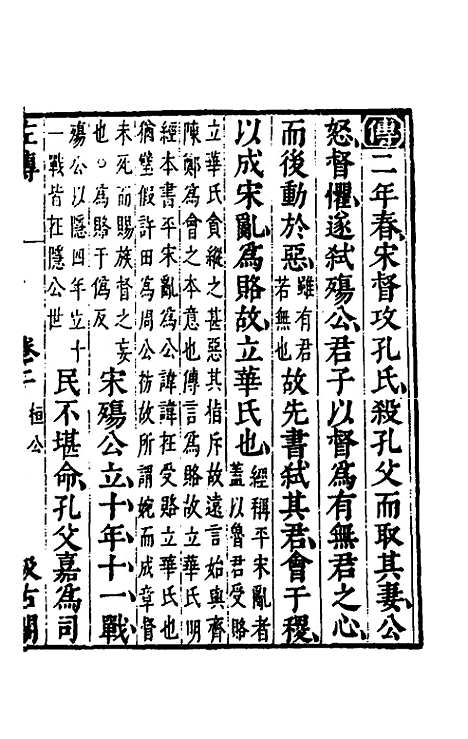 傳二年春宋督攻孔氏殺孔父而取其妻公
怒督懼遂弒殤公君子以督爲有無君之心
而後動於惡雖有君若無也故先書弒其君會于稷
以成宋亂爲賂故立華氏也經稱平宋亂者蓋以魯君受賂
立華氏貪縱之甚惡其指斥故遠言始與齊
陳鄭爲會之本意也傳言爲賂故立華氏明
經本書平宋亂爲公諱諱在受賂立華氏也
猶璧假許田爲周公祊故所謂婉而成章督
未死而賜族督之妄也○爲賂于僞反宋殤公立十年十一戰
殤公以隱四年立十一戰皆在隱公世民不堪命孔父嘉爲司
左傳 卷二 桓公 汲古閣